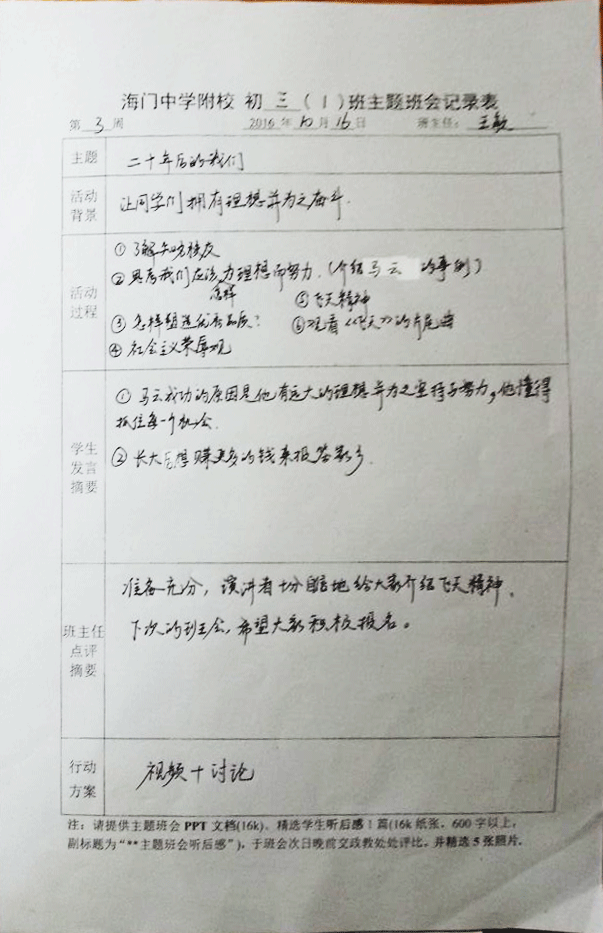 海门中学附校 初 三 (1)班主题班会记录表
第 3 周 2016年10月16日 班主任: 王敏
主题 二十年后的我们
活动背景 让同学们拥有理想并为之奋斗.
活动过程
① 了解知名校友
② 思考我们应该怎样为理想而努力.(介绍马云 的事例)
③ 怎样塑造优秀品质?
④ 社会主义荣辱观
⑤ 飞天精神
⑥ 观看《飞天》的片尾曲
学生发言摘要
① 马云成功的原因是他有远大的理想并为之坚持努力,他懂得
抓住每一个机会.
② 长大后赚更多的钱来报答家乡.
班主任点评摘要
准备充分,演讲者十分自信地给大家介绍飞天精神.
下次的班会,希望大家积极报名。
行动方案 视频+讨论
注:请提供主题班会PPT文档(16k)、精选学生听后感1篇(16k纸张,600字以上,
副标题为“**主题班会听后感”),于班会次日晚前交政教处处评比,并精选5张照片.